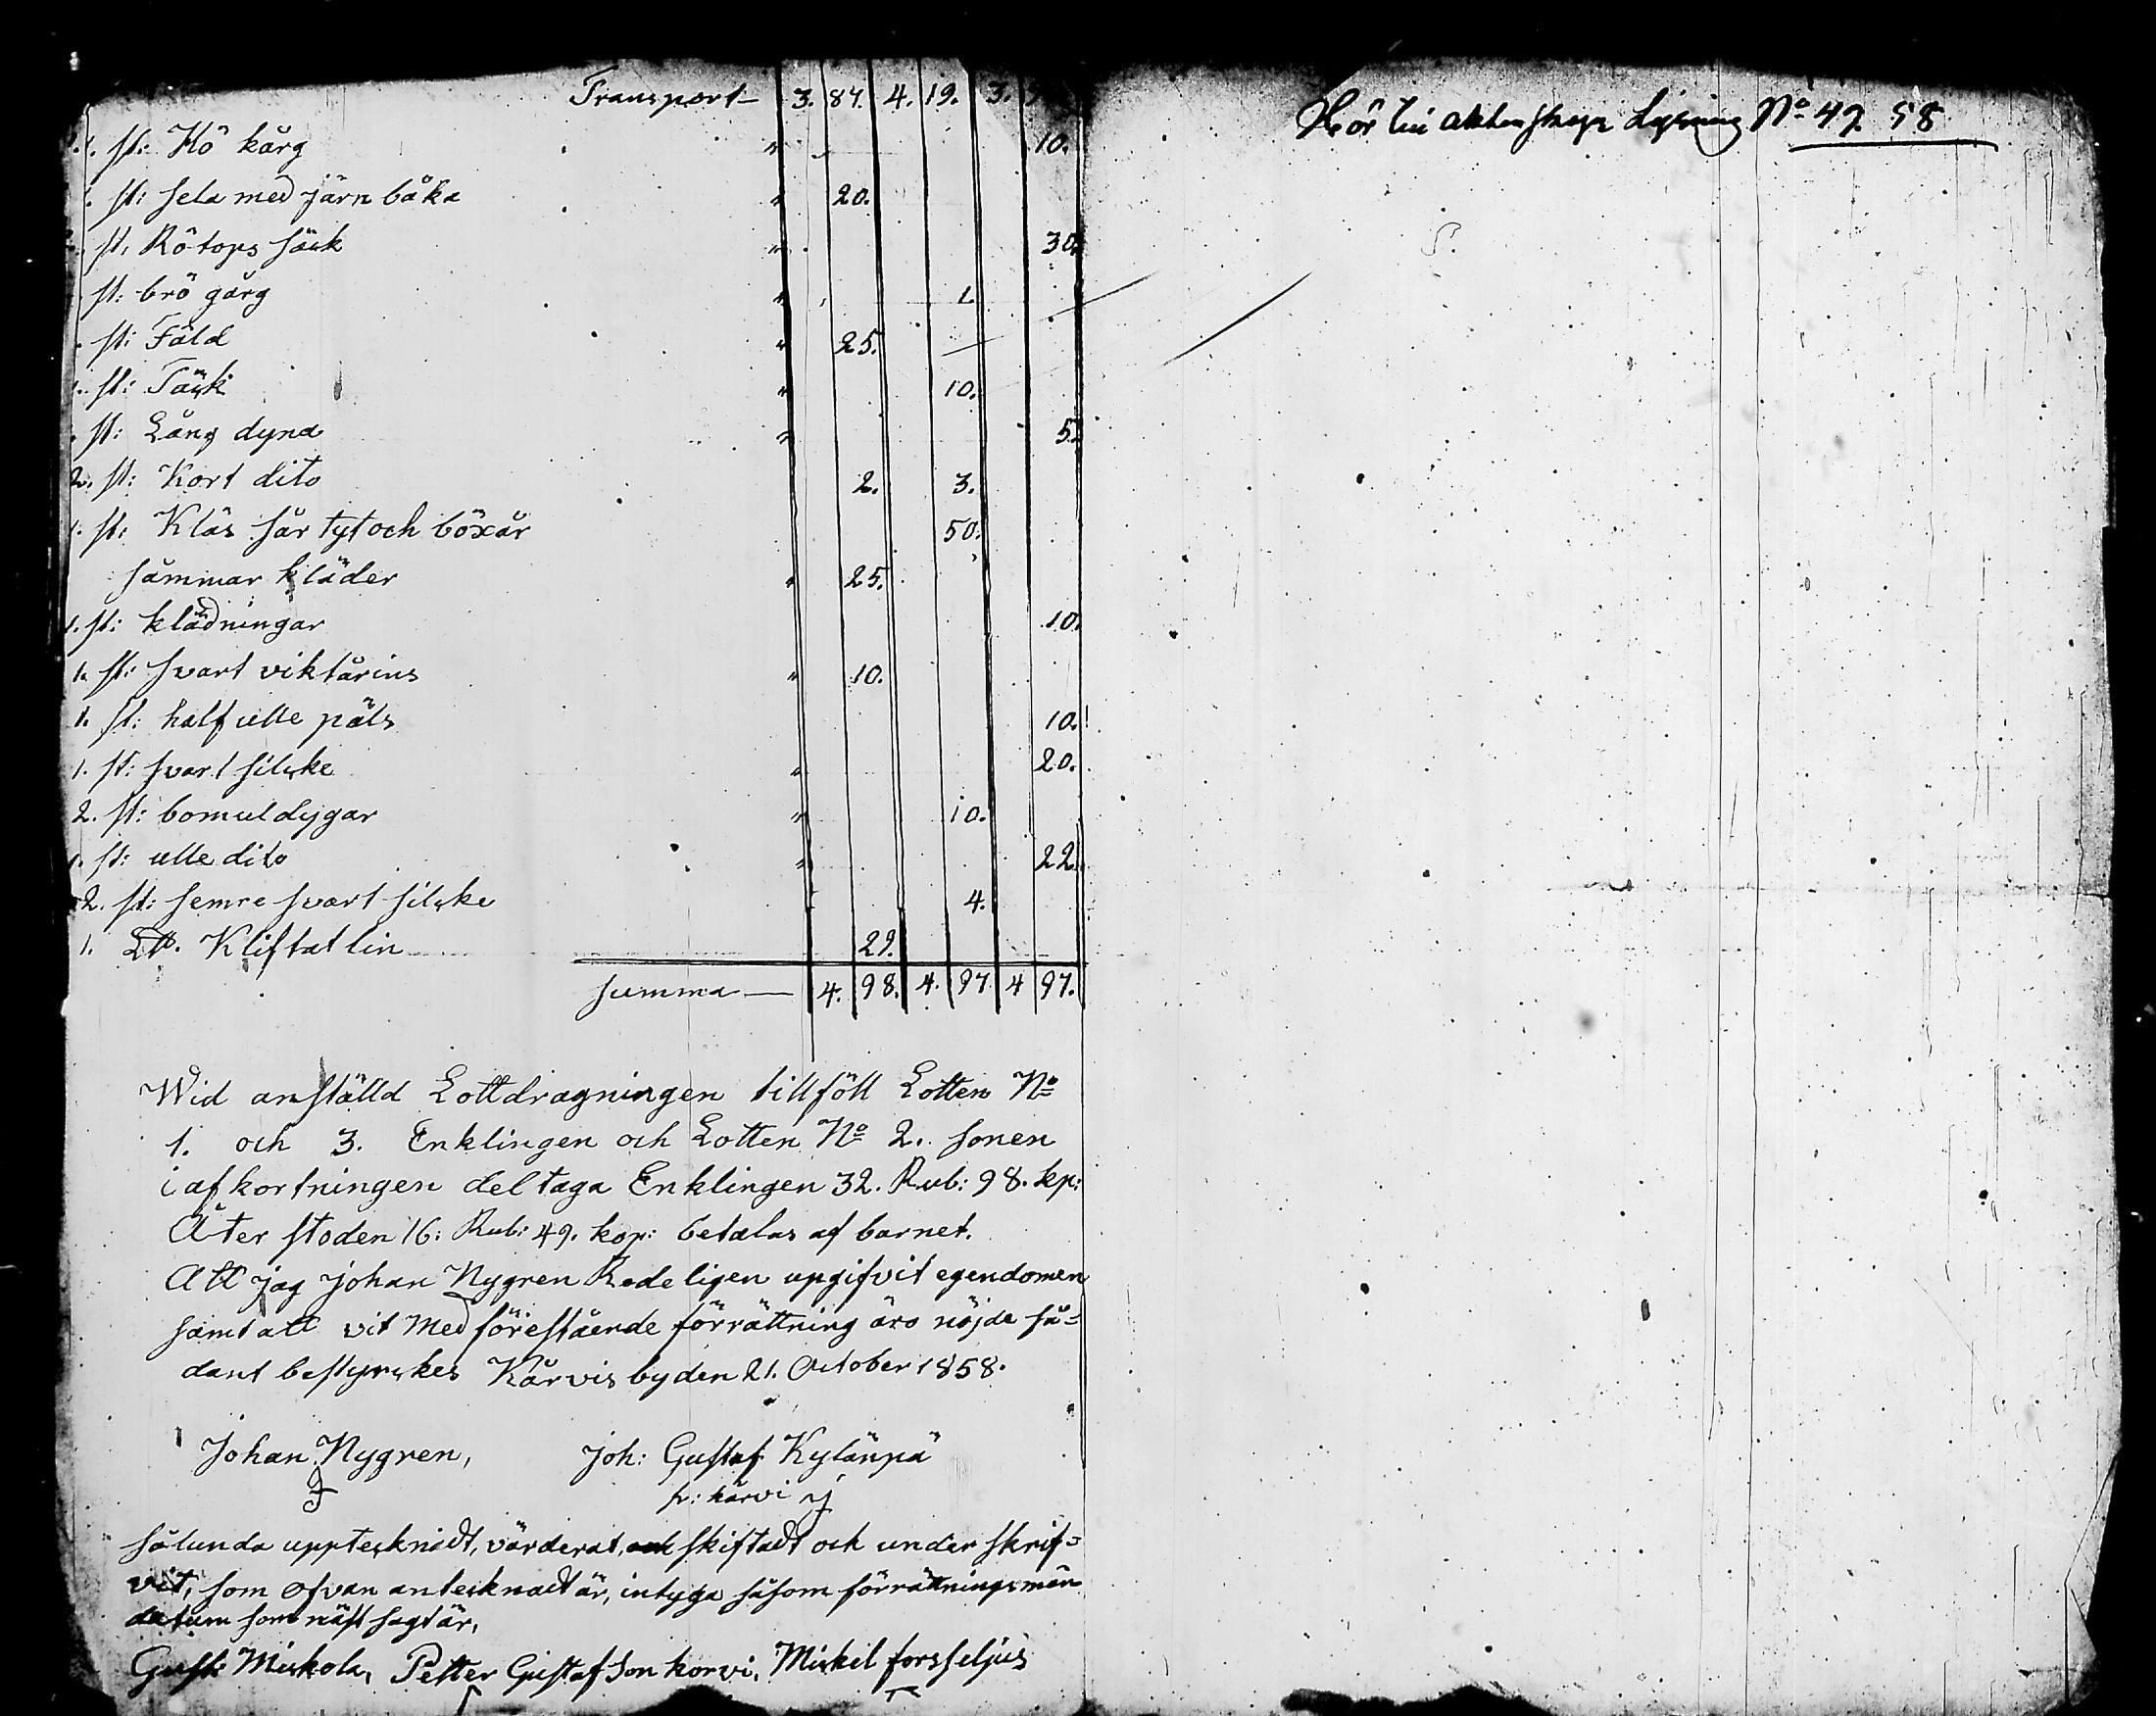 Transport 3. 87. 4. 19. 3.
1. st: Hö kårg " 10.
st: sela med järn båka " 20.
st. Rötops säck " 30.
st: brö gårg " 1.
st: Fäld " 25.
1. st: Täck " 10.
st: Lång dyna " 5.
2. st: Kort dito 2. 3.
1. st: Kläs sår tyt och böxår 50.
såmmar kläder " 25.
1. st: klädningar 10.
1. st: svart viktårins " 10.
1. st: half ulle päls 10.
1. st: svart silcke " 20.
2. st: bomuldygar " 10.
1. st: ulle dito " 22.
2. st: semre svart silcke 4.
1. L℔. Kliftat lin 29.
summa — 4. 98. 4. 97. 4 97.
Wid anställd Lottdragningen tillföll Lotten No
1. och 3. Enklingen och Lotten No 2. sonen
i afkortningen deltaga Enklingen 32. Rub: 98. kp:
Åter stoden 16: Rub: 49. kop: betalas af barnet.
Att jag johan Nygren Redeligen upgifvit egendomen
samt att vit Med förestående förrättning äro nöjde så=
dant bestyrckes Kårvis by den 21. October 1858.
Johan Nygren, Joh: Gustaf Kylänpä
p: kårvi
sålunda upptecknadt, värderat, skiftadt och under skrif=
vit, som ofvan antecknadt är, intyga såsom förrättningsmän
datum som näst sagt är,
Gust: Mickola, Petter Gustafson korvi, Mickel forsseljus
Hör till aktenskaps Lysning No 47. 58